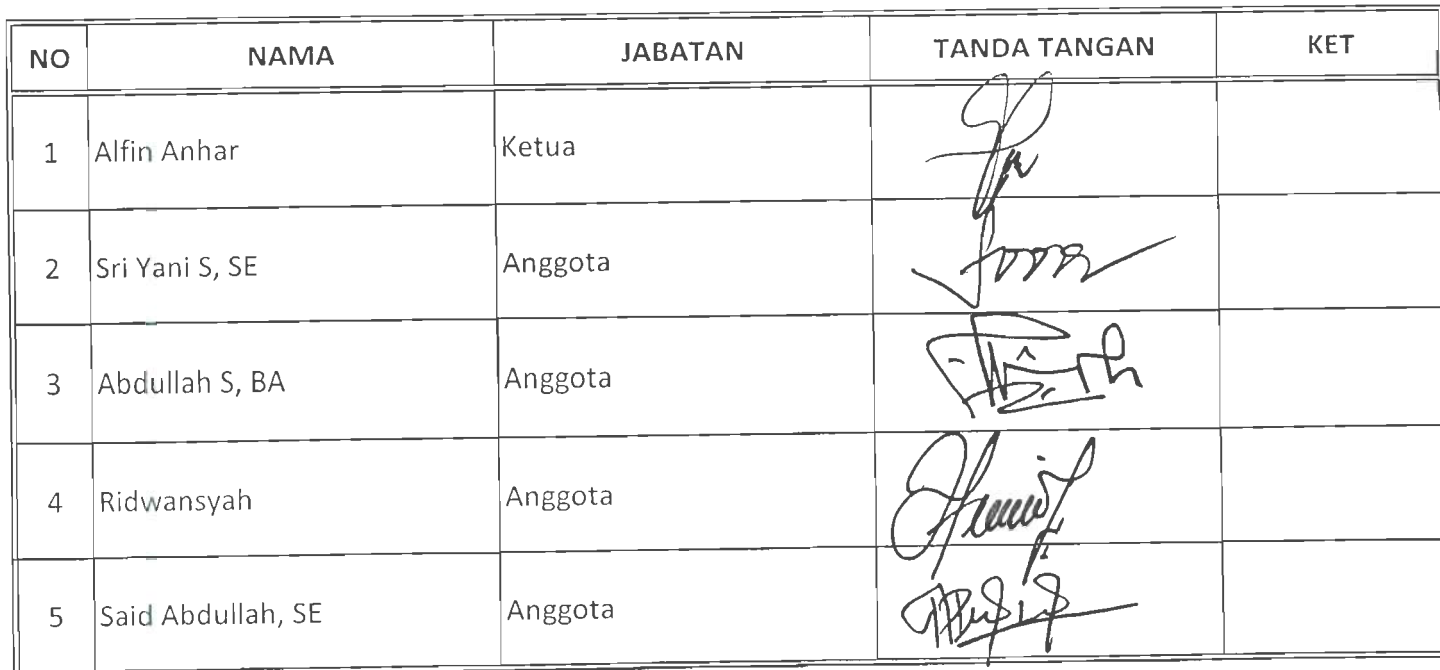 NO NAMA JABATAN TANDA TANGAN KET
1 Alfin Anhar Ketua
2 Sri Yani S, SE Anggota
3 Abdullah S, BA Anggota
4 Ridwansyah Anggota
5 Said Abdullah, SE Anggota